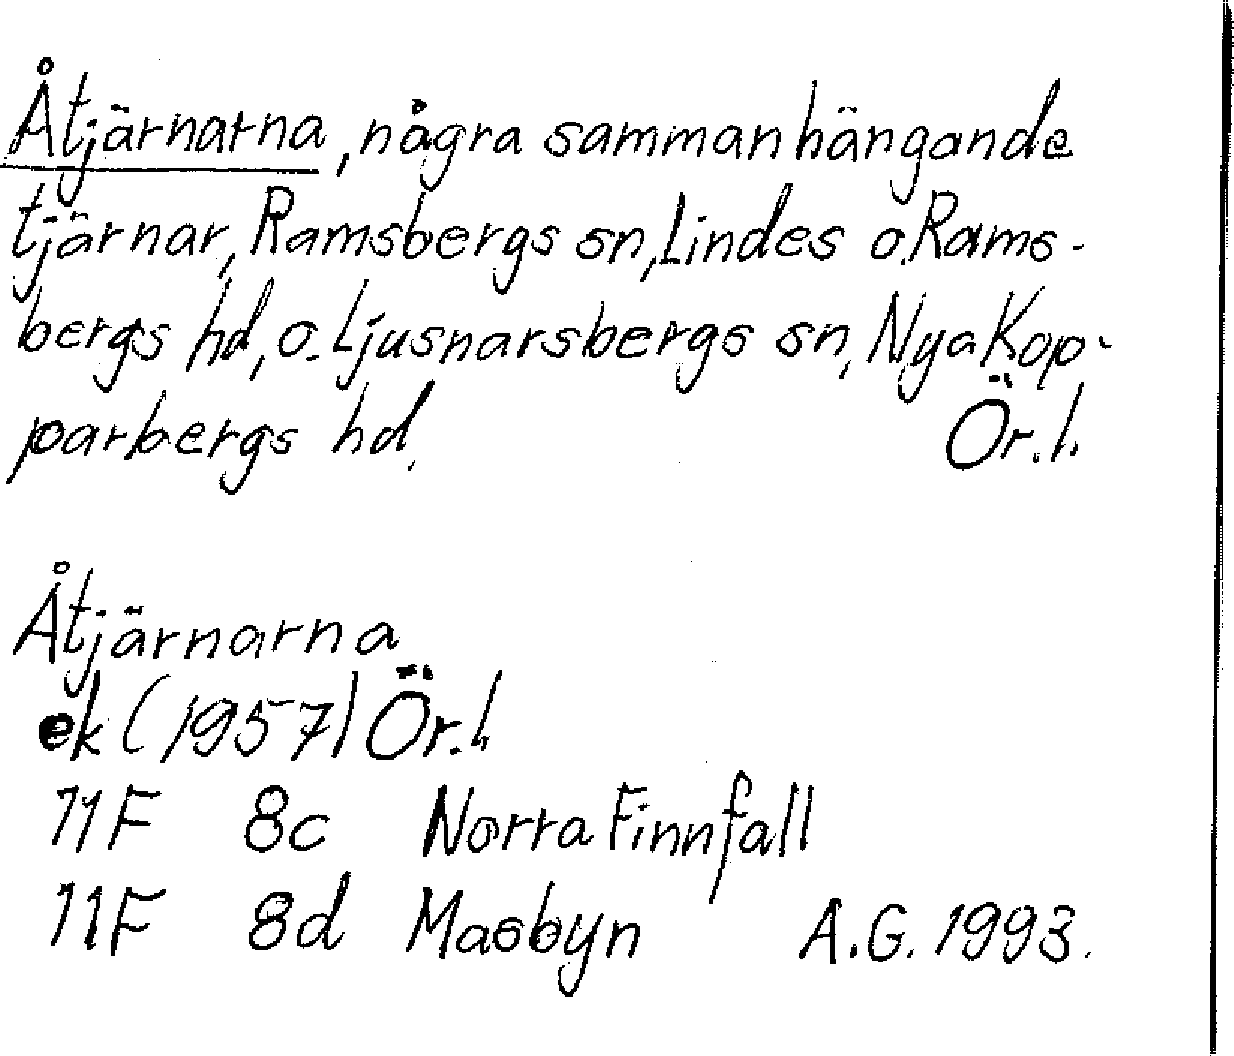 Åtjärnarna, några sammanhängande
tjärnar, Ramsbergs sn, Lindes o. Rams-
bergs hd, o. Ljusnarsbergs sn, Nya Kop-
parbergs hd. Ör. l.
Åtjärnarna
ek (1957) Ör. l.
11F 8c Norra Finnfall
11F 8d Masbyn A.G. 1993.